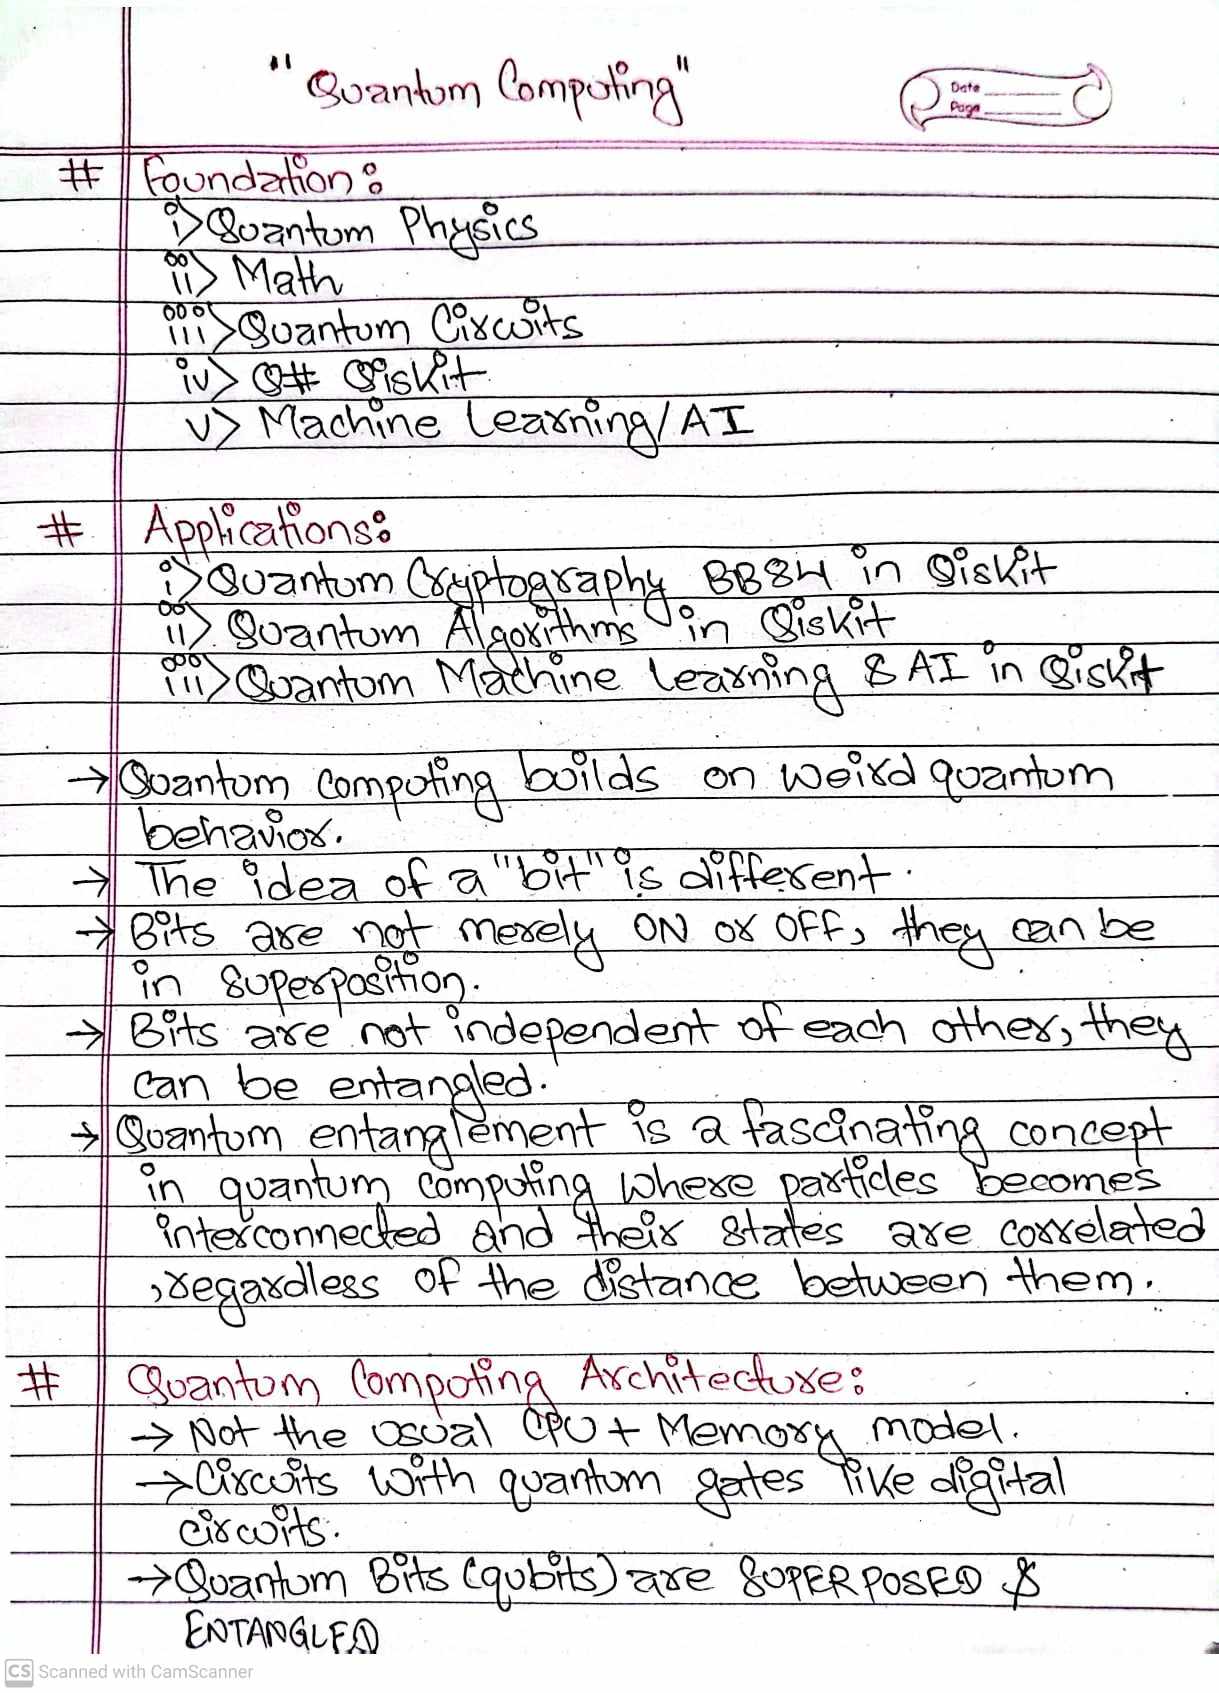 "Quantum Computing"
Date
Page
# Foundation:
i> Quantum Physics
ii> Math
iii> Quantum Circuits
iv> Q# Qiskit
v> Machine Learning/AI
# Applications:
i> Quantum Cryptography BB84 in Qiskit
ii> Quantum Algorithms in Qiskit
iii> Quantum Machine Learning & AI in Qiskit
→ Quantum computing builds on weird quantum
behavior.
→ The idea of a "bit" is different.
→ Bits are not merely ON or OFF, they can be
in superposition.
→ Bits are not independent of each other, they
can be entangled.
→ Quantum entanglement is a fascinating concept
in quantum computing where particles becomes
interconnected and their states are correlated
,regardless of the distance between them.
# Quantum Computing Architecture:
→ Not the usual CPU + Memory model.
→ Circuits with quantum gates like digital
circuits.
→ Quantum Bits (qubits) are SUPERPOSED &
ENTANGLED
CS Scanned with CamScanner